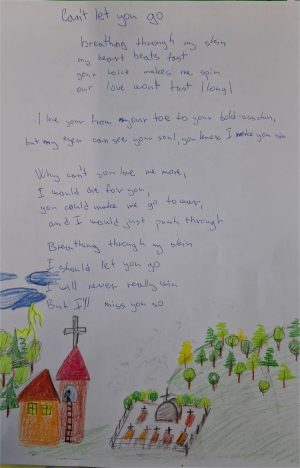 Can't let you go
breathing through my skin
my heart beats fast
your voice makes me spin
our love won't last (long)
I love your from your toe to your bold
but my eyes can see your soul, you know I make you sin
Why can't you love me more,
I would die for you,
you could make me go to war,
and I would just push through
Breathing through my skin
I should let you go
I will never really win
But I'll miss you so